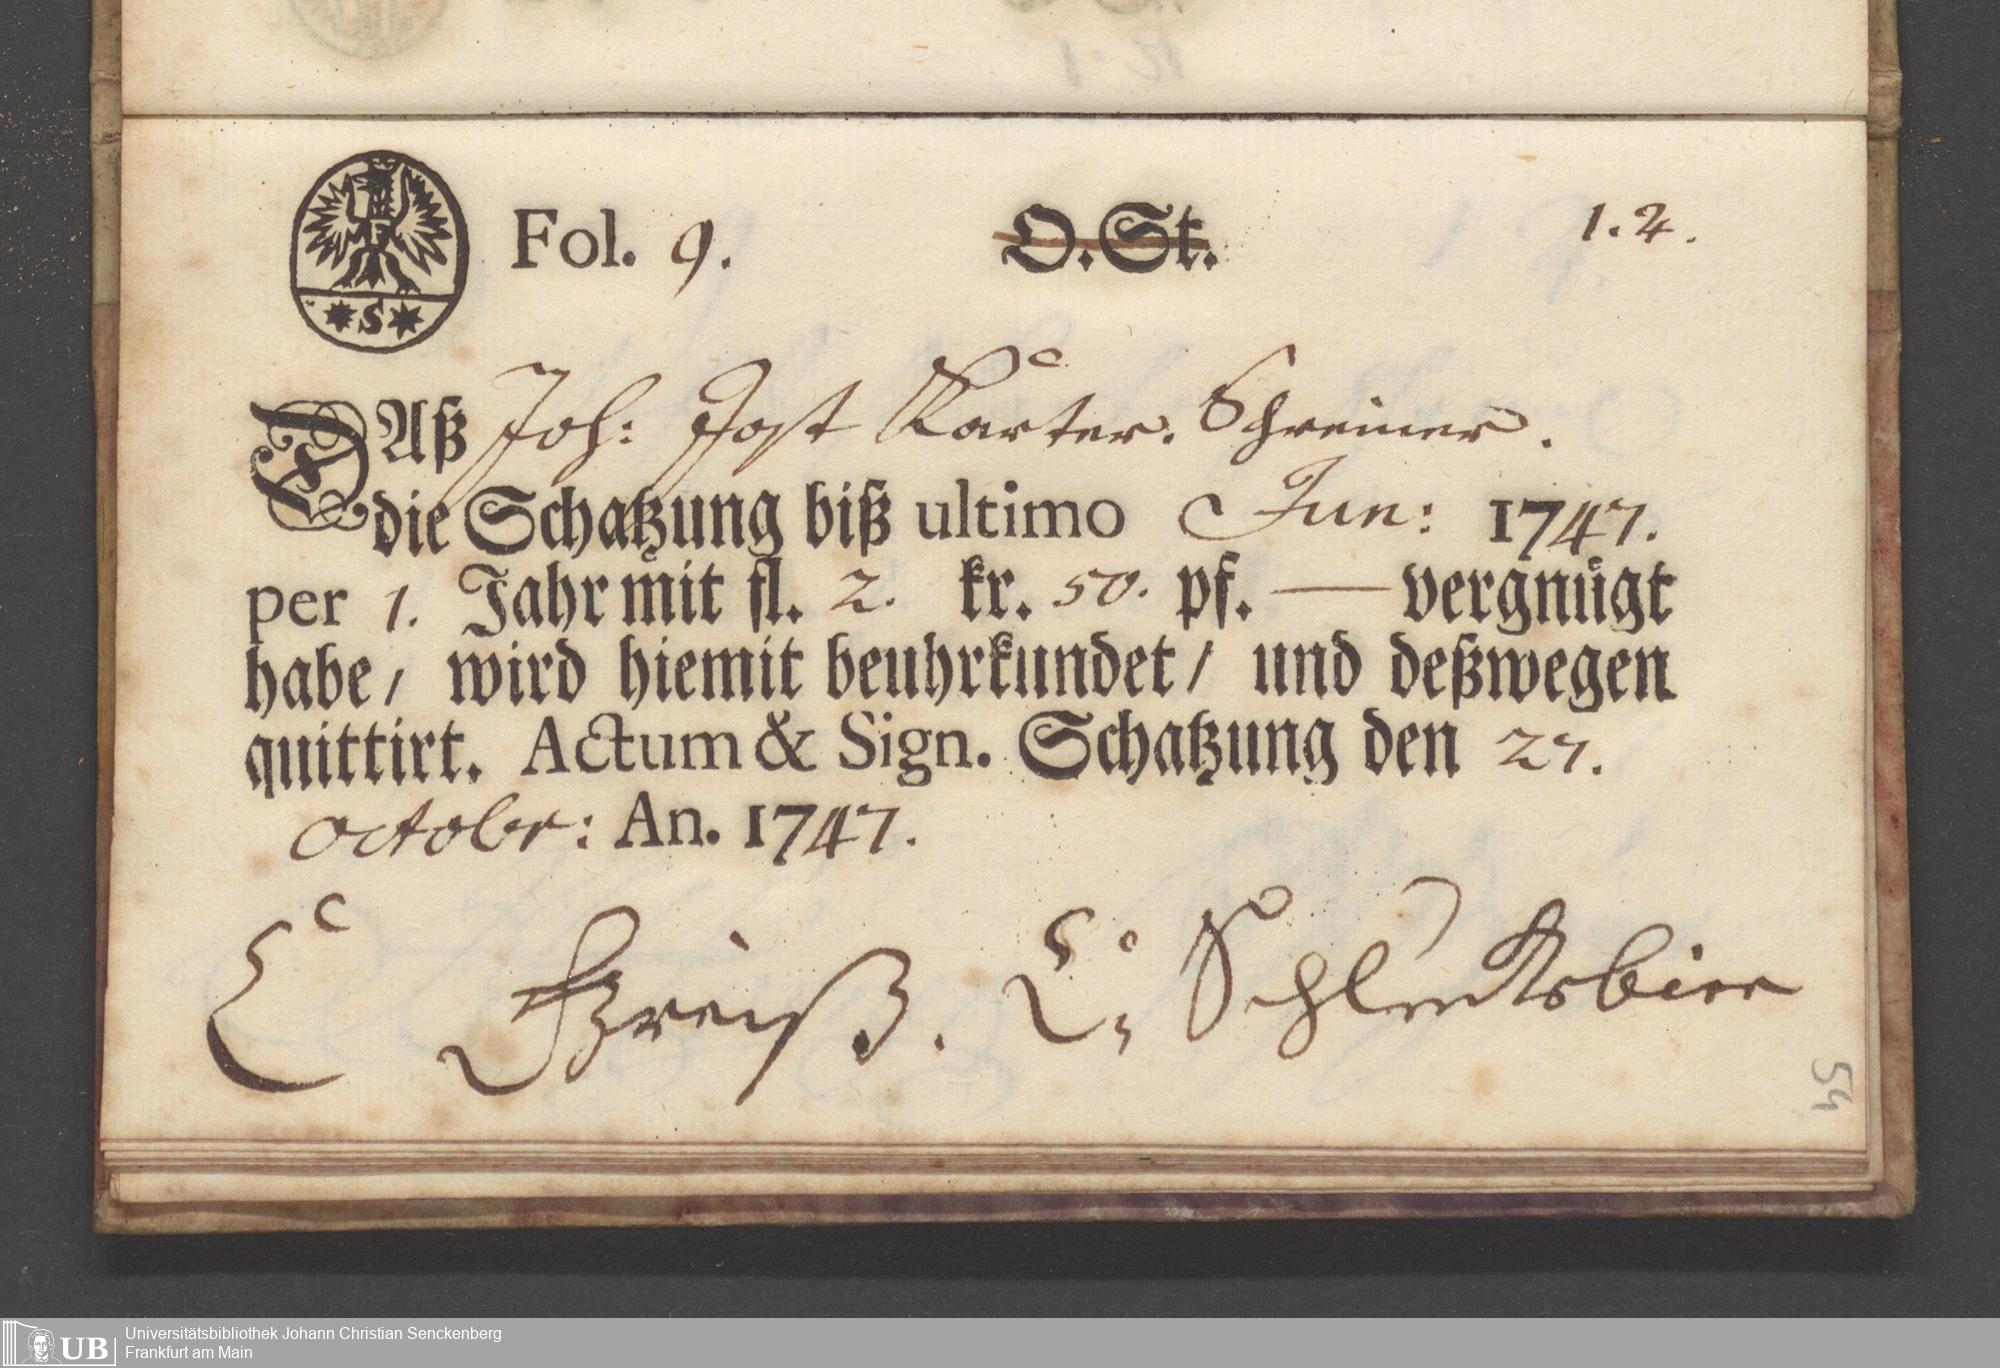 Fol. 9. O.St. 1.2.
S
DAß Joh: Jost Karter. Schreiner.
die Schatzung biß ultimo Jun: 1747.
per 1. Jahr mit fl. 2. kr. 50. pf. — vergnügt
habe / wird hiemit beuhrkundet / und deßwegen
quittirt. Actum & Sign. Schatzung den 27.
octobr: An. 1747.
54
Universitätsbibliothek Johann Christian Senckenberg
UB Frankfurt am Main